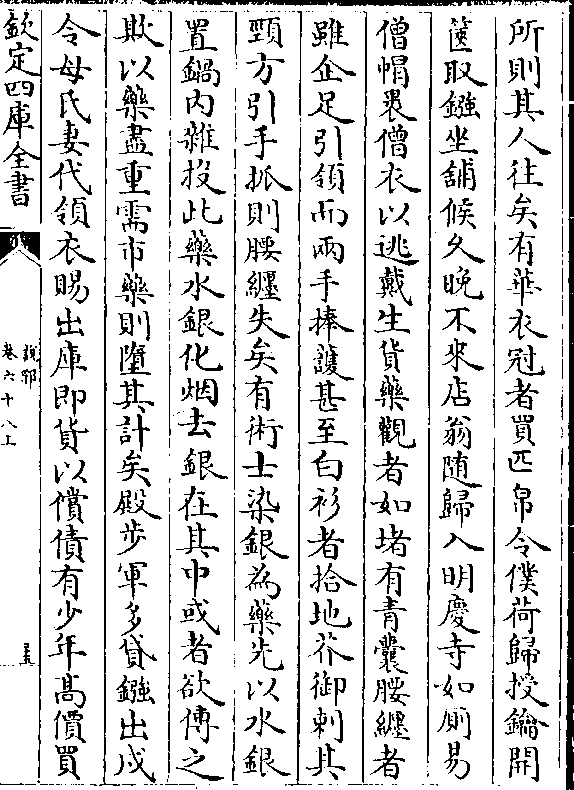 所則其人往矣有華衣冠者買匹帛令僕荷歸授鑰開
篋取鏹坐鋪候久晚不來店翁隨歸入明慶寺如厠易
僧帽褁僧衣以逃戴生貨藥觀者如堵有青囊腰纏者
雖企足引領而兩手捧護甚至白衫者拾地芥御刺其
頸方引手抓則腰纏失矣有術士染銀為藥先以水銀
置鍋内雜投此藥水銀化烟去銀在其中或者欲傳之
欺以藥盡重需市藥則墮其計矣殿步軍多貸鏹出戍
令母氏妻代領衣賜出庫即貨以償債有少年高價買
欽定四庫全書
說郛
卷六十八上